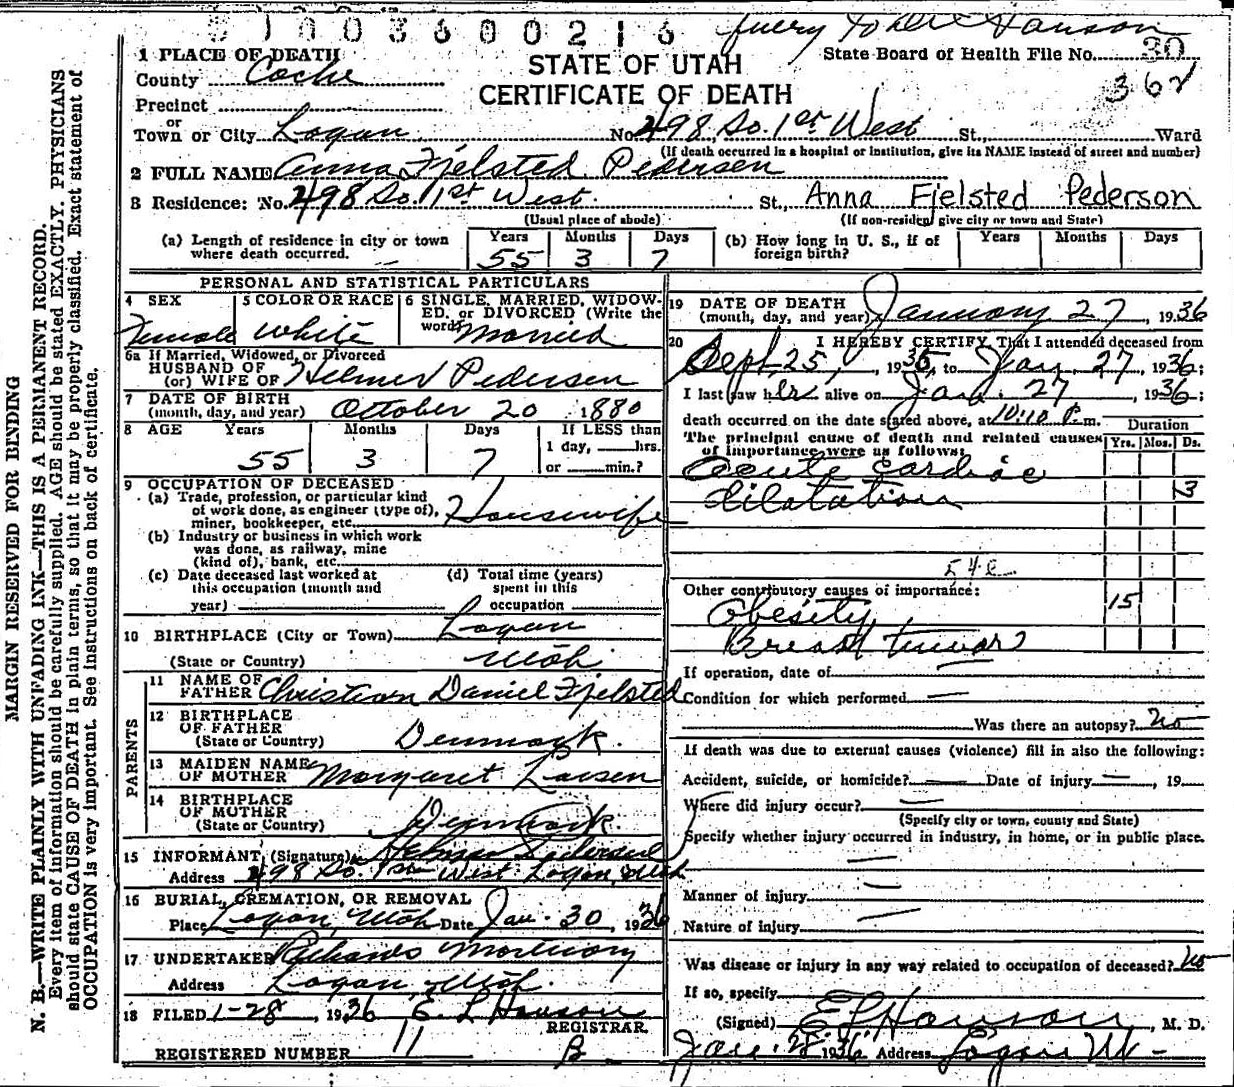 21003600216
Query to Dr Hanson
1 PLACE OF DEATH
STATE OF UTAH
State Board of Health File No. 30
County Cache
CERTIFICATE OF DEATH
362
Precinct
or
Town or City Logan No. 498 So. 1st West St., Ward
(If death occurred in a hospital or institution, give its NAME instead of street and number)
2 FULL NAME Anna Fjelsted Pedersen
3 Residence: No. 498 So. 1st West. St., Anna Fjelsted Pederson
(Usual place of abode) (If non-resident give city or town and State)
(a) Length of residence in city or town where death occurred. Years 55 Months 3 Days 7
(b) How long in U. S., if of foreign birth? Years Months Days
PERSONAL AND STATISTICAL PARTICULARS
4 SEX Female
5 COLOR OR RACE White
6 SINGLE, MARRIED, WIDOWED, or DIVORCED (Write the word) Married
6a If Married, Widowed, or Divorced
HUSBAND OF
(or) WIFE OF Helmer Pedersen
7 DATE OF BIRTH
(month, day, and year) October 20 1880
8 AGE Years 55 Months 3 Days 7 If LESS than
1 day, hrs.
or min.?
9 OCCUPATION OF DECEASED
(a) Trade, profession, or particular kind
of work done, as engineer (type of),
miner, bookkeeper, etc. Housewife
(b) Industry or business in which work
was done, as railway, mine
(kind of), bank, etc.
(c) Date deceased last worked at
this occupation (month and
year)
(d) Total time (years)
spent in this
occupation
10 BIRTHPLACE (City or Town) Logan
(State or Country) Utah
PARENTS
11 NAME OF
FATHER Christian Daniel Fjelsted
12 BIRTHPLACE
OF FATHER
(State or Country) Denmark.
13 MAIDEN NAME
OF MOTHER Margaret Larsen
14 BIRTHPLACE
OF MOTHER
(State or Country) Denmark.
15 INFORMANT (Signature) Helmer Pedersen
Address 498 So. 1st West Logan, Utah
16 BURIAL, CREMATION, OR REMOVAL
Place Logan, Utah Date Jan. 30, 1936
17 UNDERTAKER Richards Mortuary
Address Logan, Utah.
18 FILED 1-28, 1936 E. L Hanson
REGISTRAR
REGISTERED NUMBER 11 B
19 DATE OF DEATH
(month, day, and year) January 27, 1936
20 I HEREBY CERTIFY, That I attended deceased from
Sept, 25, 1935, to Jan. 27, 1936;
I last saw her alive on Jan. 27, 1936;
death occurred on the date stated above, at 10:10 P. m.
Duration
The principal cause of death and related causes
of importance were as follows:
Yrs. Mos. Ds.
Acute Cardiac
dilatation 3
Other contributory causes of importance:
Obesity 15
Breast tumor
If operation, date of
Condition for which performed
Was there an autopsy? no
If death was due to external causes (violence) fill in also the following:
Accident, suicide, or homicide? Date of injury , 19
Where did injury occur?
(Specify city or town, county and State)
Specify whether injury occurred in industry, in home, or in public place.
Manner of injury
Nature of injury
Was disease or injury in any way related to occupation of deceased? no
If so, specify
(Signed) E L Hanson, M. D.
Jan. 28 1936 Address Logan Ut
MARGIN RESERVED FOR BINDING
N. B.—WRITE PLAINLY WITH UNFADING INK—THIS IS A PERMANENT RECORD.
Every item of information should be carefully supplied. AGE should be stated EXACTLY. PHYSICIANS
should state CAUSE OF DEATH in plain terms, so that it may be properly classified. Exact statement of
OCCUPATION is very important. See instructions on back of certificate.